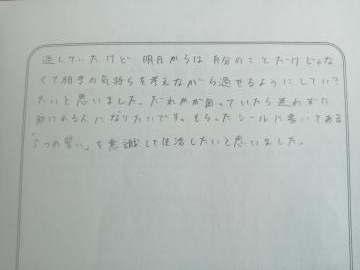 過していたけど 明日からは自分のことだけじゃな
くて相手の気持ちを考えながら過せるようにしていき
たいと思いました。だれかが困っていたら迷わずに
助けれる人になりたいです。もらったシールに書いてある
「5つの誓い」を意識して生活したいと思いました。